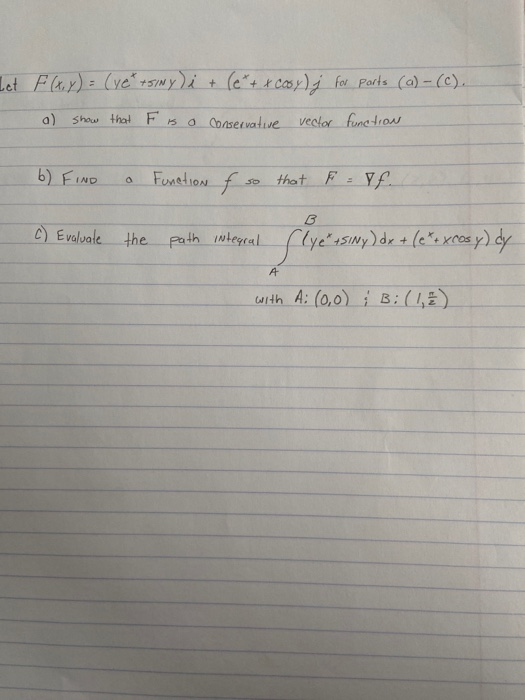 Let F(x,y) = (ye^x + sin y)i + (e^x + x cos y)j for parts (a) - (c).
a) Show that F is a conservative vector function
b) Find a Function f so that F = ∇f.
c) Evaluate the path integral ∫_A^B (ye^x + sin y)dx + (e^x + x cos y) dy
with A: (0,0) ; B: (1, π/2)